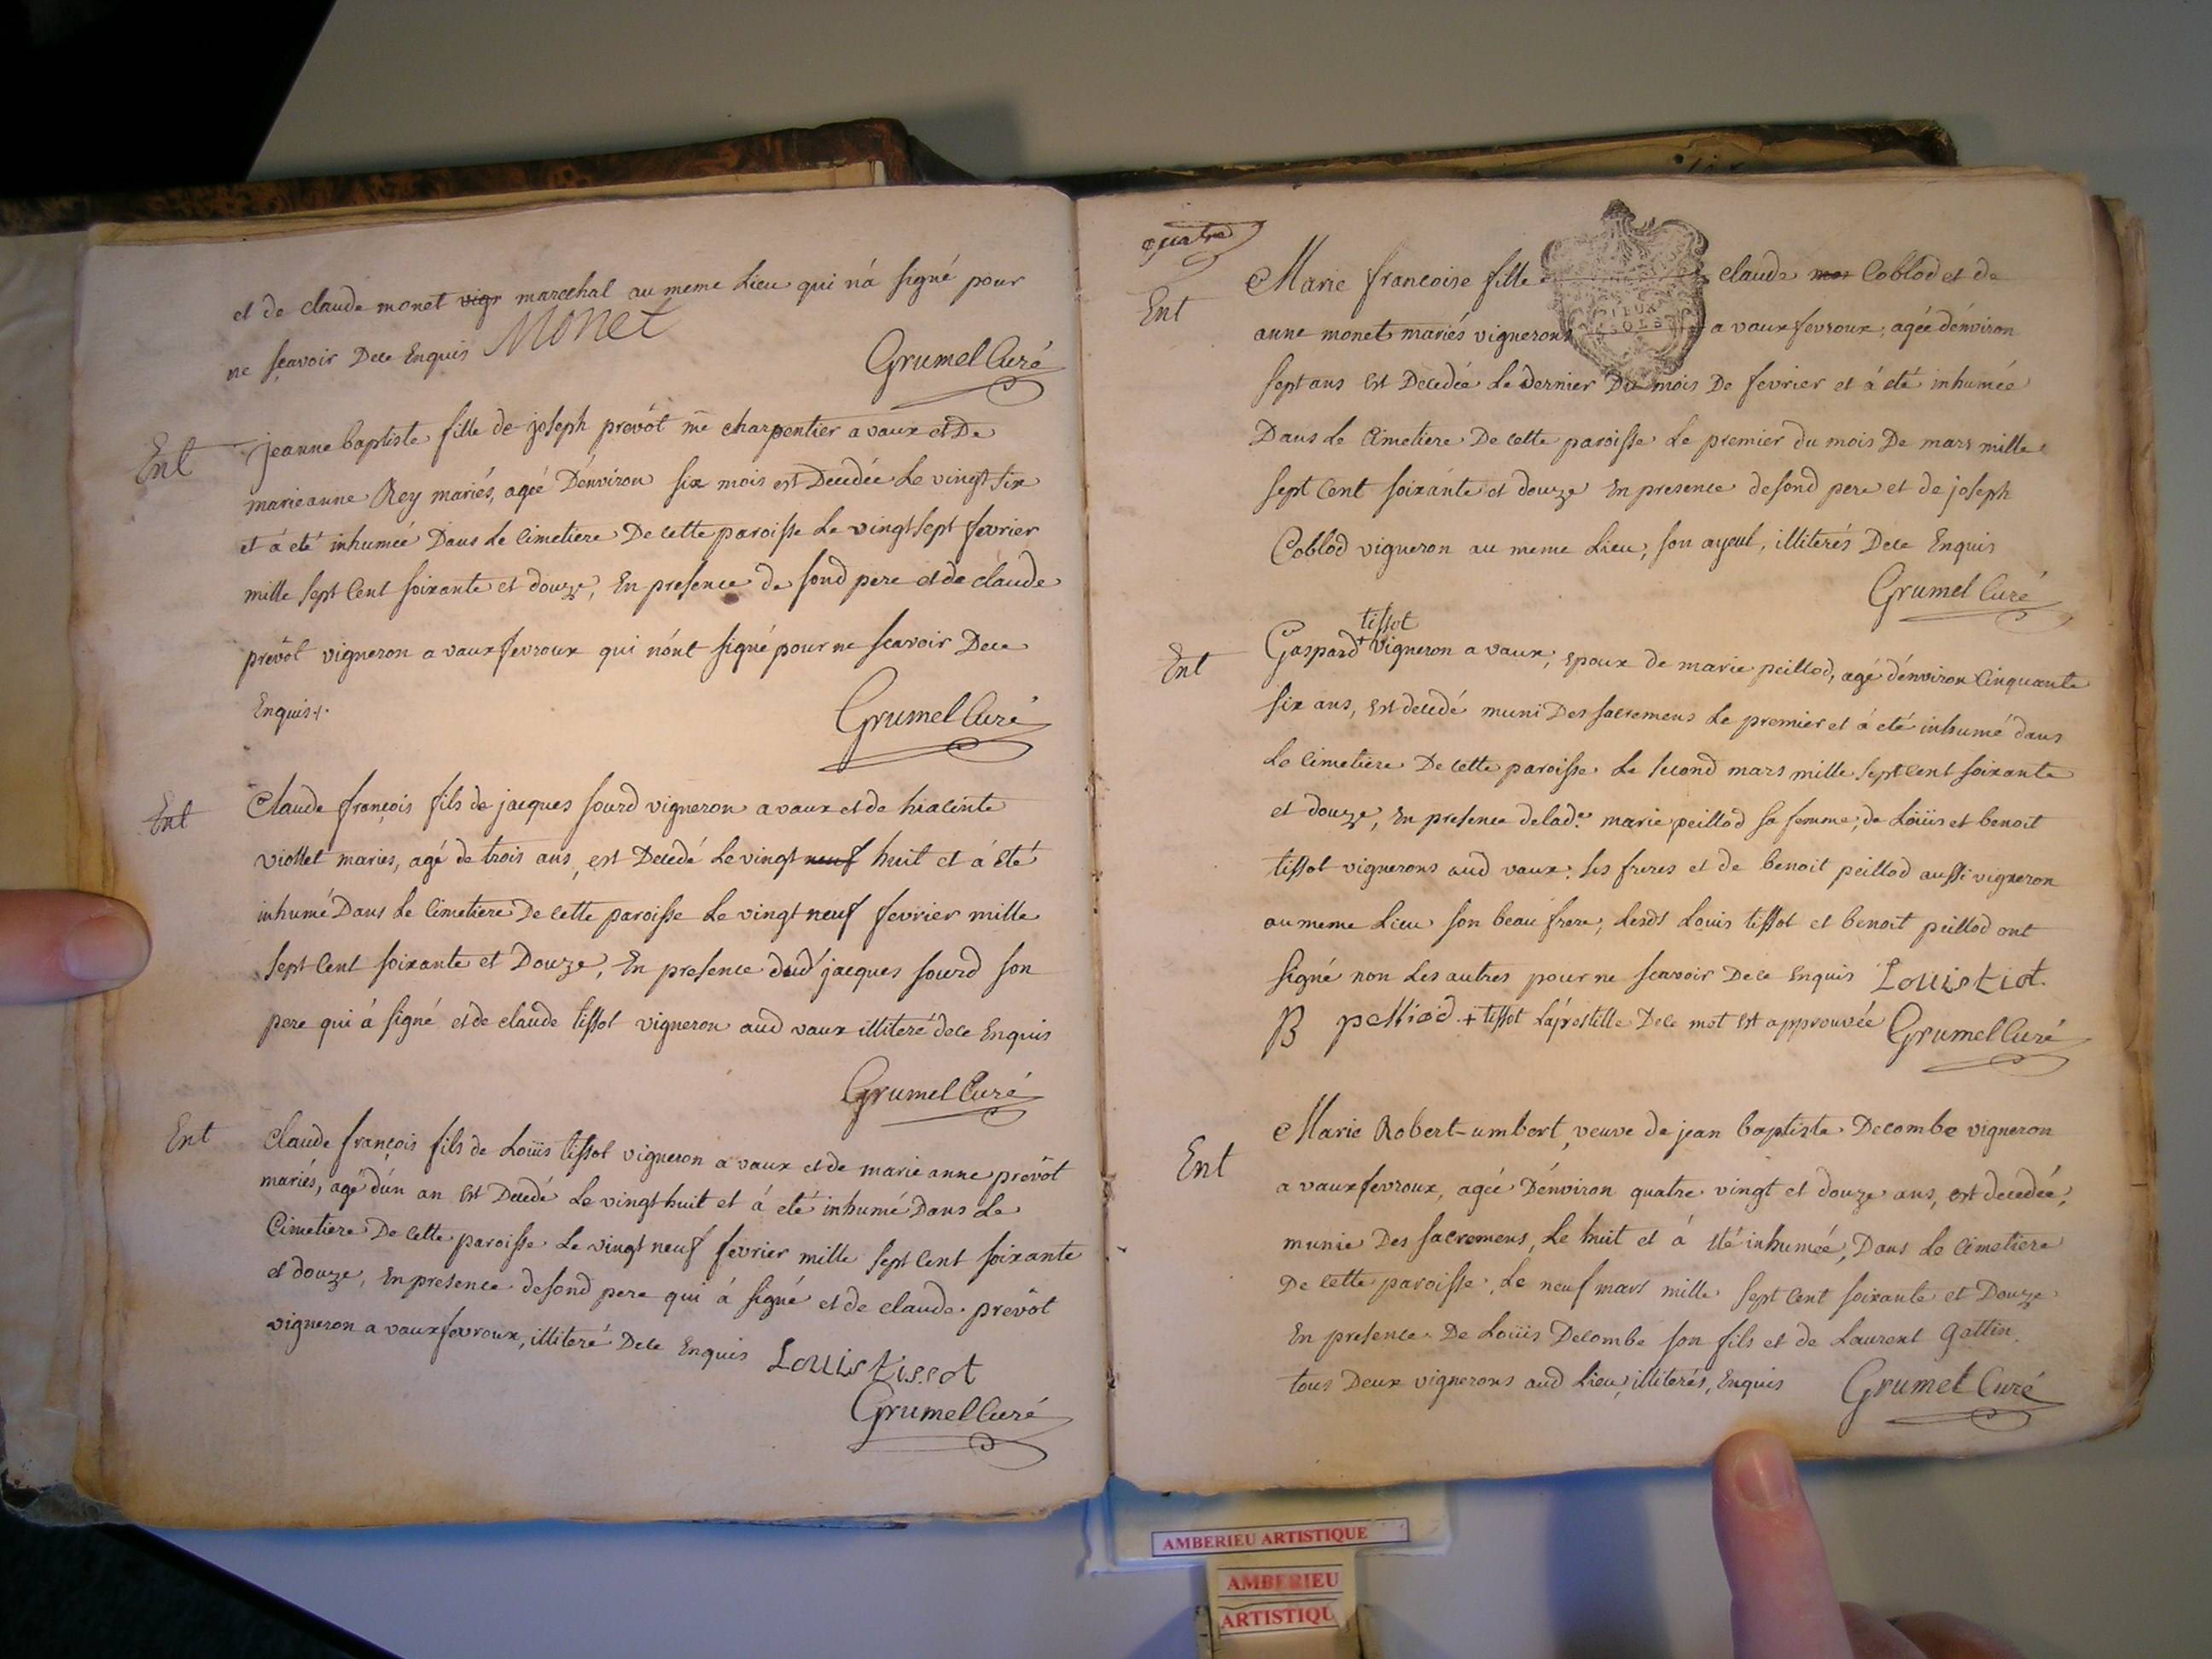 et de claude monet vigr marechal au meme Lieu qui n'á signé pour
ne sçavoir De ce Enquis Monet
Grumel Curé
Ent
jeanne baptiste fille de joseph prevôt me charpentier a vaux et De
marie anne Rey mariés, ageé D'environ six mois est Decedée Le vingt six
et á eté inhumeé Dans Le Cimetiere De cette paroisse Le vingt sept fevrier
mille sept Cent soixante et douze, En presence de sond pere et de claude
prevôt vigneron a vaux fevroux qui n'ónt signé pour ne scavoir De ce
Enquis
Grumel Curé
Ent
Claude françois fils de jacques sourd vigneron a vaux et de hiacinte
viollet mariés, agé de trois ans, est Decedé Le vingt neuf huit et á eté
inhumé Dans Le Cimetiere De cette paroisse Le vingt neuf fevrier mille
sept Cent soixante et Douze, En presence dud jacques sourd son
pere qui á signé et de claude tissot vigneron aud vaux illiteré de ce Enquis
Grumel Curé
Ent
Claude françois fils de Loüis tissot vigneron a vaux et de marie anne prevôt
mariés, agé d'ún an est Decedé Le vingt huit et á eté inhumé Dans Le
Cimetiere De cette paroisse Le vingt neuf fevrier mille sept Cent soixante
et douze, En presence de sond pere qui á signé et de claude prevôt
vigneron a vaux fevroux, illiteré De ce Enquis Louis tissot
Grumel Curé
quatre
Ent
Marie francoise fille claude mor Coblod et de
anne monet mariés vignerons a vaux fevroux, ageé d'énviron
sept ans est Decedée Le dernier Du mois De fevrier et á eté inhumée
Dans Le Cimetiere De cette paroisse Le premier du mois De mars mille
sept Cent soixante et douze En presence de sond pere et de joseph
Coblod vigneron au meme Lieu, son ayeul, illiterés De ce Enquis
Grumel Curé
tissot
Ent
Gaspard + vigneron a vaux, epoux de marie peillod, agé d'énviron Cinquante
six ans, est decedé muni Des sacremens Le premier et á eté inhumé dans
Le Cimetiere De cette paroisse Le second mars mille sept Cent soixante
et douze, En presence de lade. marie peillod sa femme, de Loüis et benoit
tissot vignerons aud vaux. ses freres et de benoit peillod aussi vigneron
au meme Lieu son beau frere, Lesds Louis tissot et benoit peillod ont
signé non Les autres pour ne scavoir De ce Enquis Louis tiot.
B pelliod + tissot L'ápostille De ce mot est approuvée Grumel Curé
Ent
Marie Robert-umbert, veuve de jean baptiste Decombe vigneron
a vaux fevroux, ageé D'énviron quatre vingt et douze ans, est decedée,
munie Des sacremens, Le huit et á eté inhumeé, Dans Le Cimetiere
De cette paroisse, Le neuf mars mille sept Cent soixante et Douze
En presence De Loüis Decombe son fils et de Laurent Gattin
tous Deux vignerons aud Lieu, illiterés, Enquis Grumel Curé
AMBERIEU ARTISTIQUE
AMBERIEU
ARTISTIQU